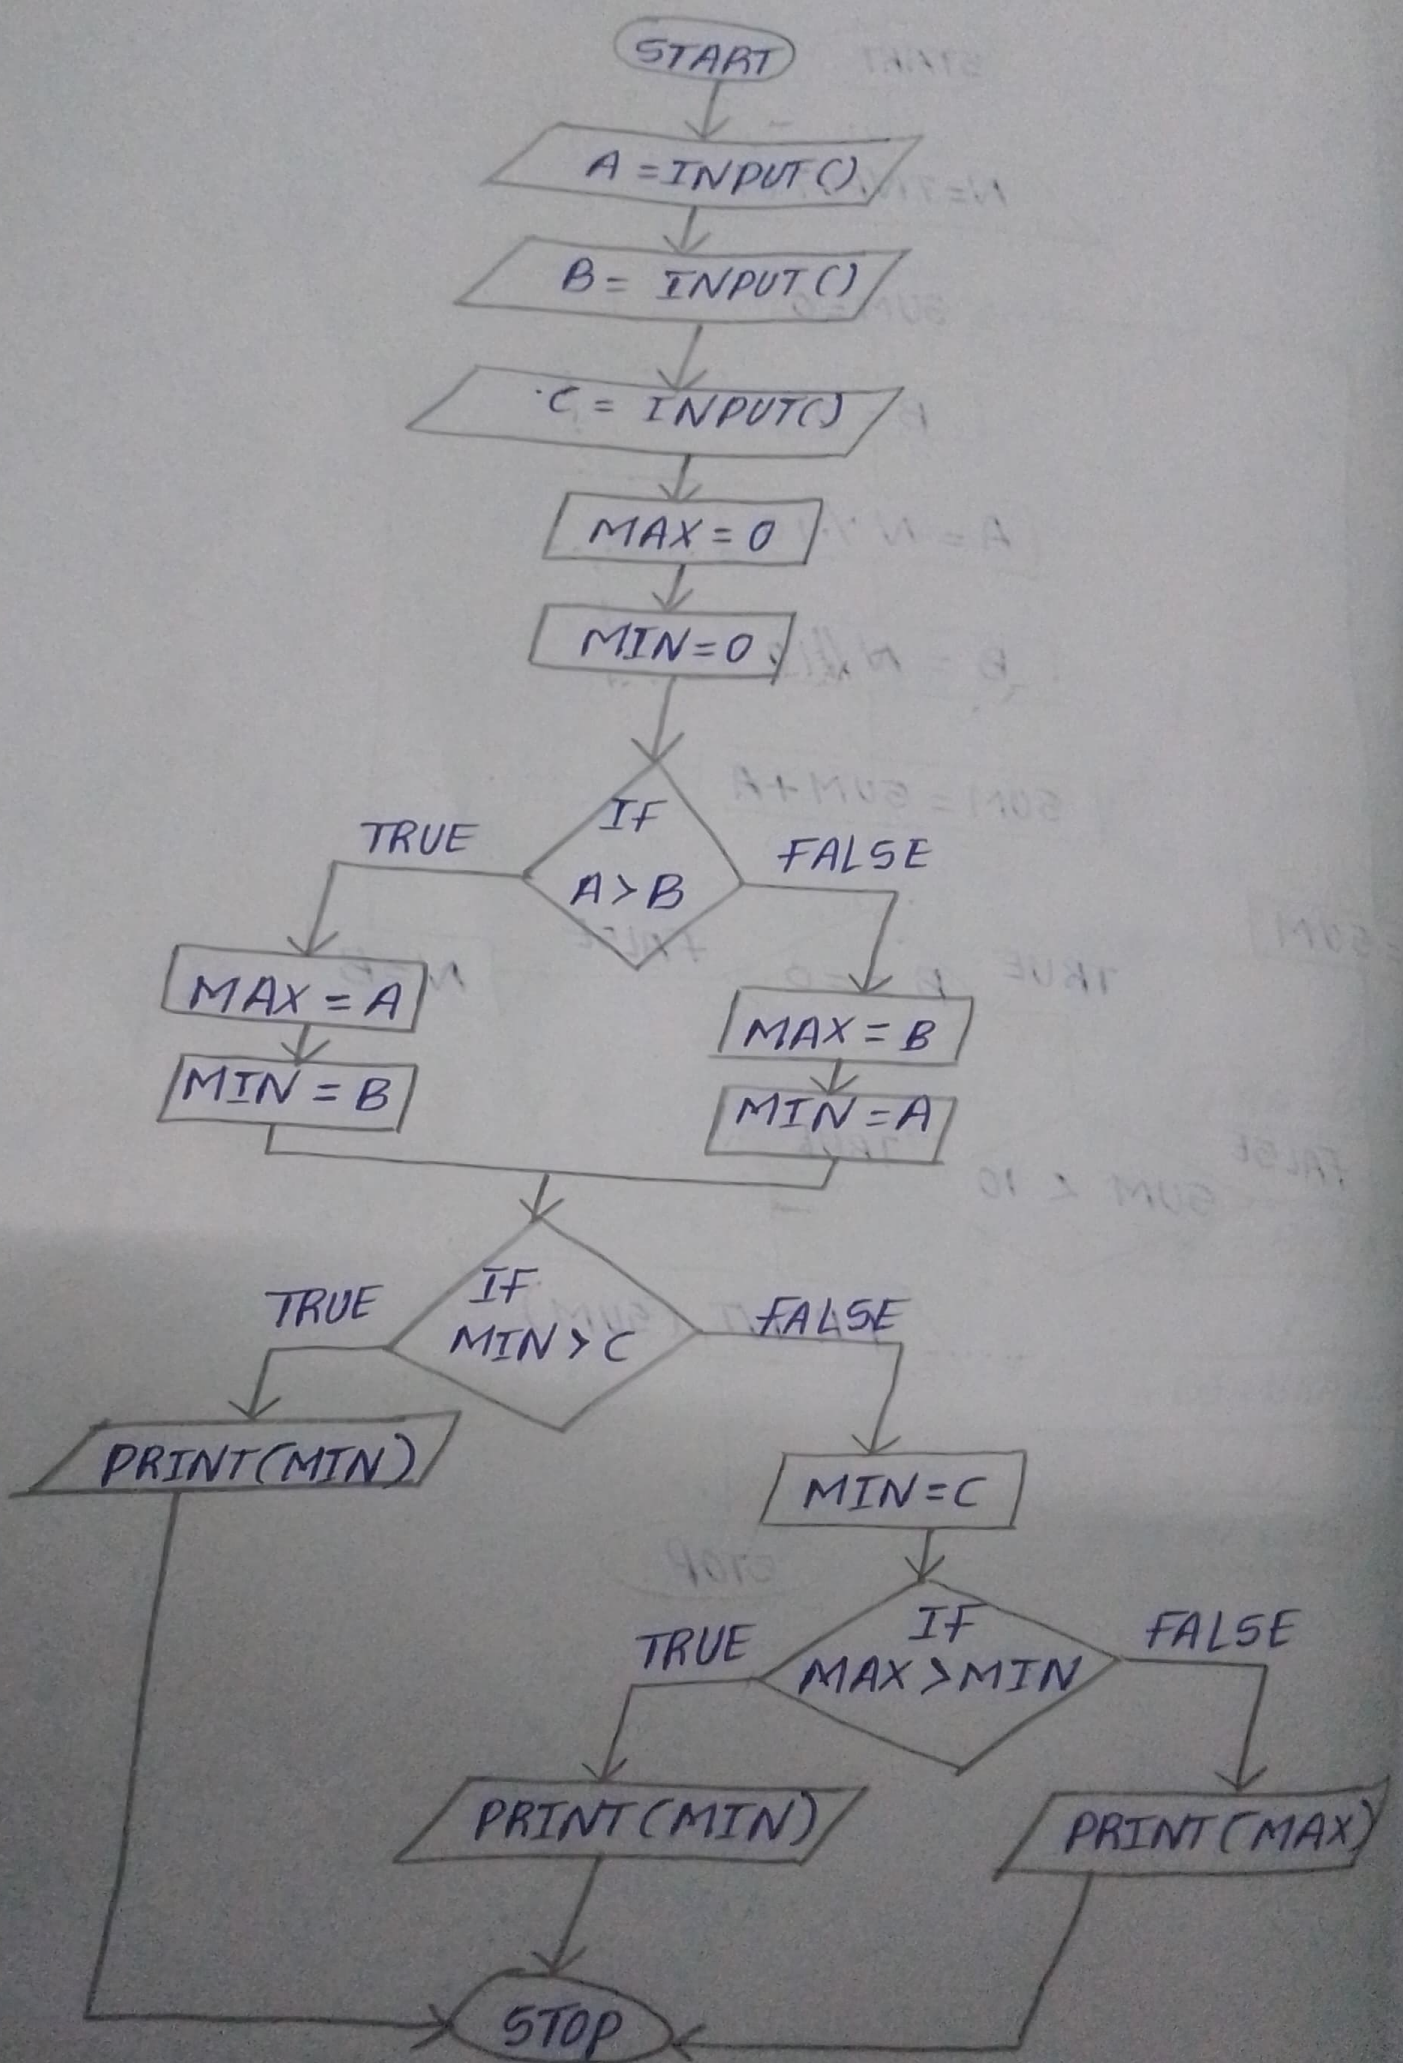 START
A = INPUT()
B = INPUT()
C = INPUT()
MAX = 0
MIN = 0
IF
A > B
TRUE
FALSE
MAX = A
MIN = B
MAX = B
MIN = A
IF
MIN > C
TRUE
FALSE
PRINT(MIN)
MIN = C
IF
MAX > MIN
TRUE
FALSE
PRINT(MIN)
PRINT(MAX)
STOP